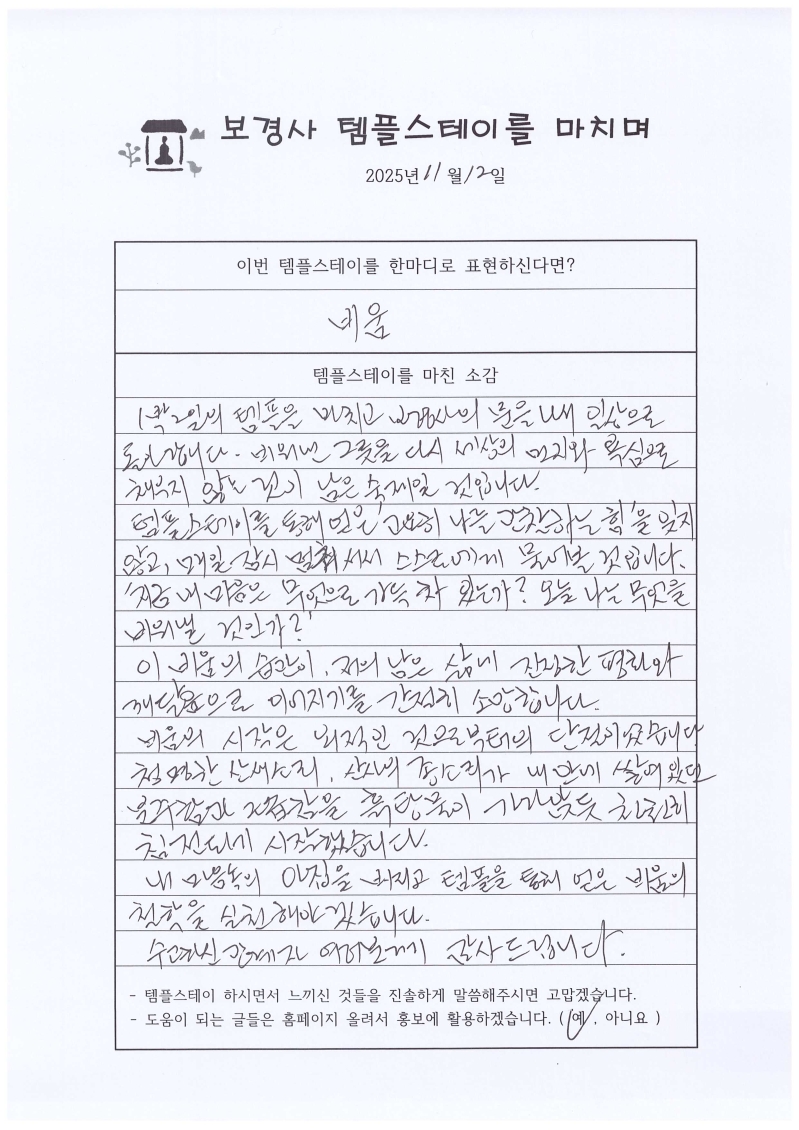 보경사 템플스테이를 마치며
2025년 11월 12일
이번 템플스테이를 한마디로 표현하신다면?
비움
템플스테이를 마친 소감
1박2일의 템플을 마치고 보경사의 문을 나서 일상으로
돌아갑니다. 비워낸 그릇을 다시 세상의 먼지와 욕심으로
채우지 않는 것이 남은 숙제일 것입니다.
템플스테이를 통해 얻은 '고요히 나를 관찰하는 힘'을 잊지
않고, 매일 잠시 멈춰 서서 스스로에게 물어볼 것입니다.
'지금 내 마음은 무엇으로 가득 차 있는가? 오늘 나는 무엇을
비워낼 것인가?'
이 비움의 습관이, 저의 남은 삶에 진정한 평화와
깨달음으로 이어지기를 간절히 소망합니다.
비움의 시작은 외적인 것으로부터의 단절이었습니다
청명한 산새소리, 산사의 종소리가 내 안에 쌓여 있던
분주함과 조급함을 흙탕물이 가라앉듯 천천히
침전되기 시작했습니다.
내 마음속의 아집을 버리고 템플을 통해 얻은 비움의
철학을 실천해야겠습니다.
수고하신 관계자 여러분께 감사드립니다.
- 템플스테이 하시면서 느끼신 것들을 진솔하게 말씀해주시면 고맙겠습니다.
- 도움이 되는 글들은 홈페이지 올려서 홍보에 활용하겠습니다. ( 예 , 아니요 )